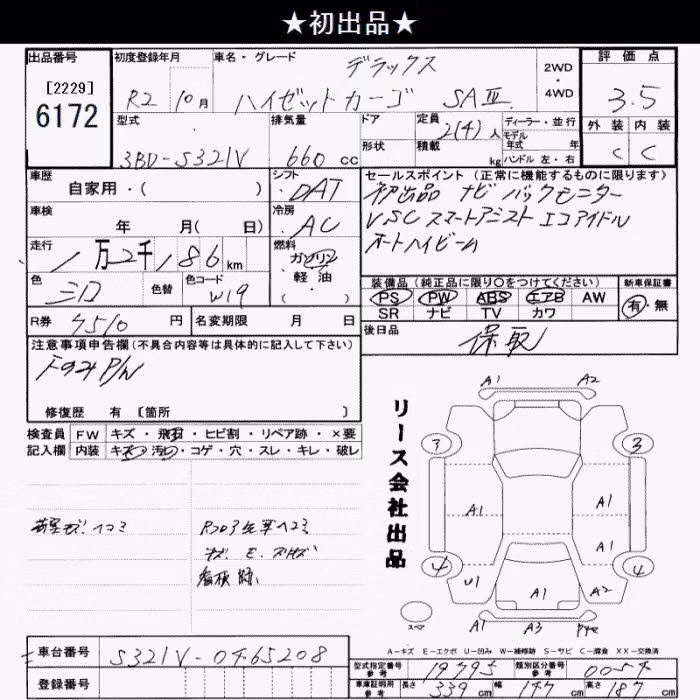 ★初出品★
出品番号
[2229]
6172
初度登録年月
R2 10月
車名・グレード
デラックス
ハイゼットカーゴ SAⅢ
2WD
・
4WD
評価点
3.5
外装 内装
C C
型式
3BD-S321V
排気量
660 cc
ドア
形状
定員
2(4)人
積載
kg
ディーラー・並行
モデル
年式 年
ハンドル 左・右
車歴
自家用・( )
シフト
DAT
車検
年 月( 日)
冷房
AC
走行
1万2千186 km
燃料
ガソリン
軽油
・( )
色
シロ
色替
色コード
W19
R券
7510 円
名変期限 月 日
セールスポイント(正常に機能するものに限ります)
初出品 ナビ バックモニター
VSC スマートアシスト エコアイドル
オートハイビーム
装備品(純正品に限り○をつけてください)
PS PW ABS エアB AW
SR ナビ TV カワ
新車保証書
有・無
後日品
保取
注意事項申告欄(不具合内容等は具体的に記入して下さい)
P/W
修復歴 有 〔箇所 〕
検査員 FW キズ・飛石・ヒビ割・リペア跡・×要
記入欄 内装 キズ・汚れ・コゲ・穴・スレ・キレ・破レ
荷室キズ ヘコミ
Rフロア
看板跡
リース会社出品
A1 A2
3 3
A1 A1
A1
4 4
U1 A1 A2
A1 A3
スペア
A-キズ E-エクボ U-凹み W-補修跡 S-サビ C-腐食 XX-交換済
車台番号
S321V-0465208
登録番号
型式指定番号
参考
19795
類別区分番号
参考
0054
車庫証明用
参考
長さ 339 cm 幅 147 cm 高さ 187 cm